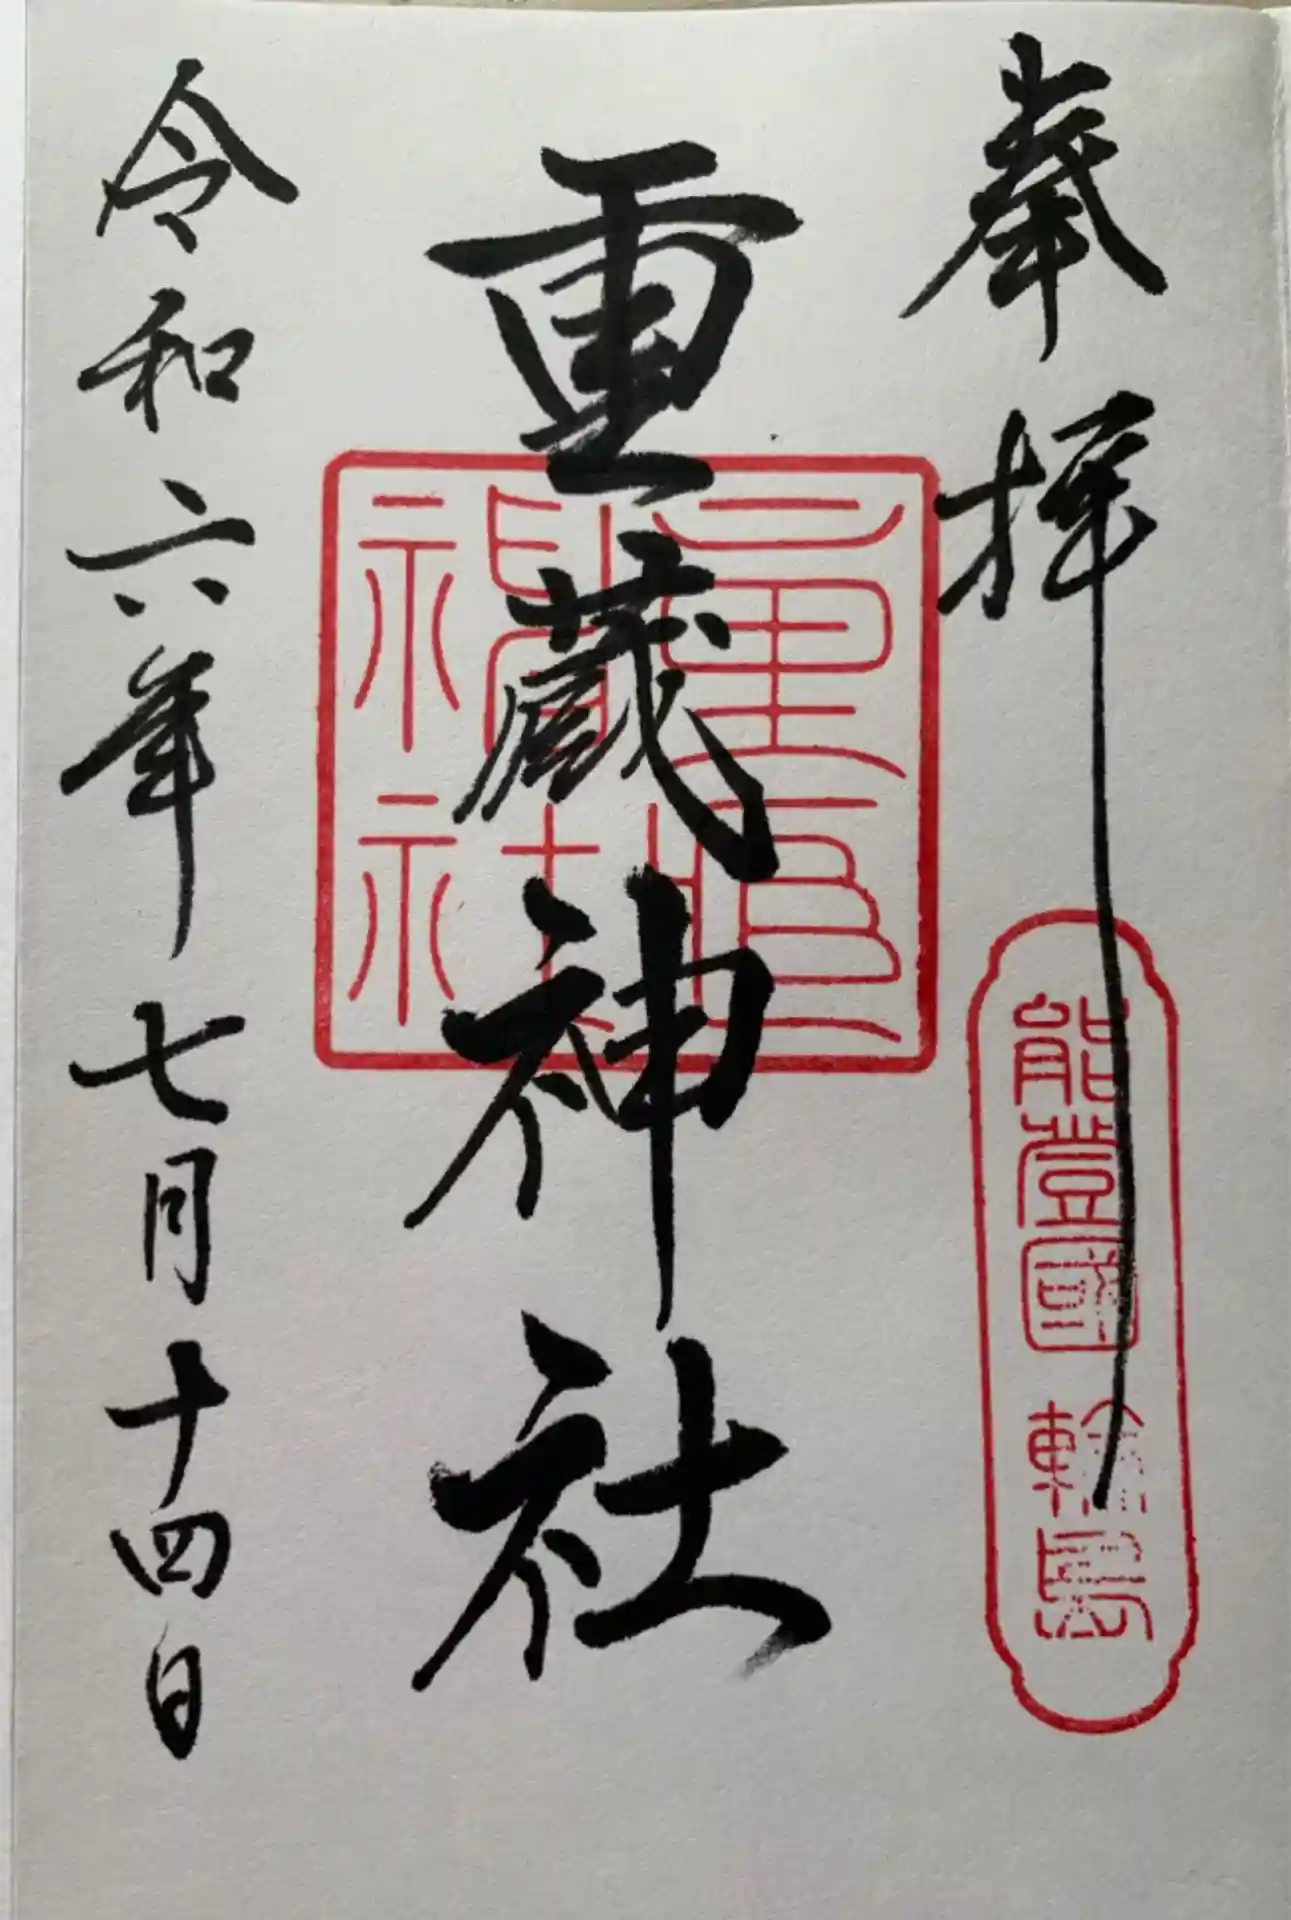 奉拝
能登國 輪島
重蔵神社
令和六年七月十四日